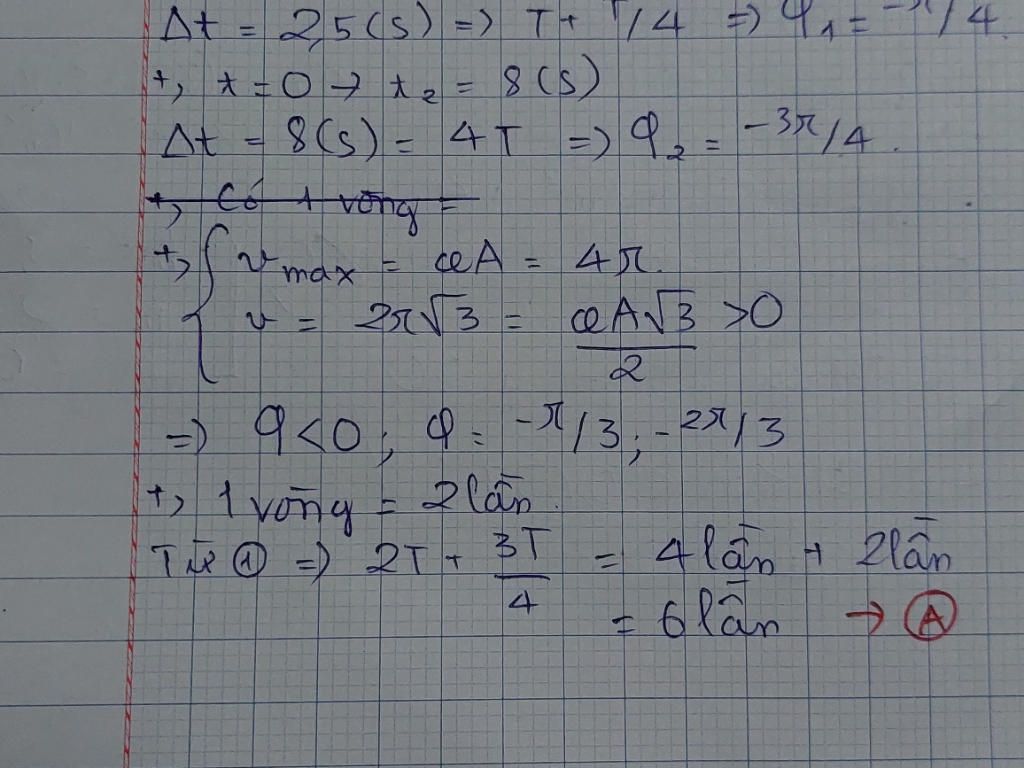 Δt = 2,5(s) => T + T/4 => φ₁ = -π/4.
+, t = 0 → t₂ = 8(s)
Δt = 8(s) = 4T => φ₂ = -3π/4.
+, Có 1 vòng =
+, { v max = ωA = 4π.
v = 2π√3 = ωA√3/2 >0
=> φ<0; φ = -π/3; -2π/3
+, 1 vòng = 2 lần.
Từ ① => 2T + 3T/4 = 4 lần + 2 lần
= 6 lần → Ⓐ